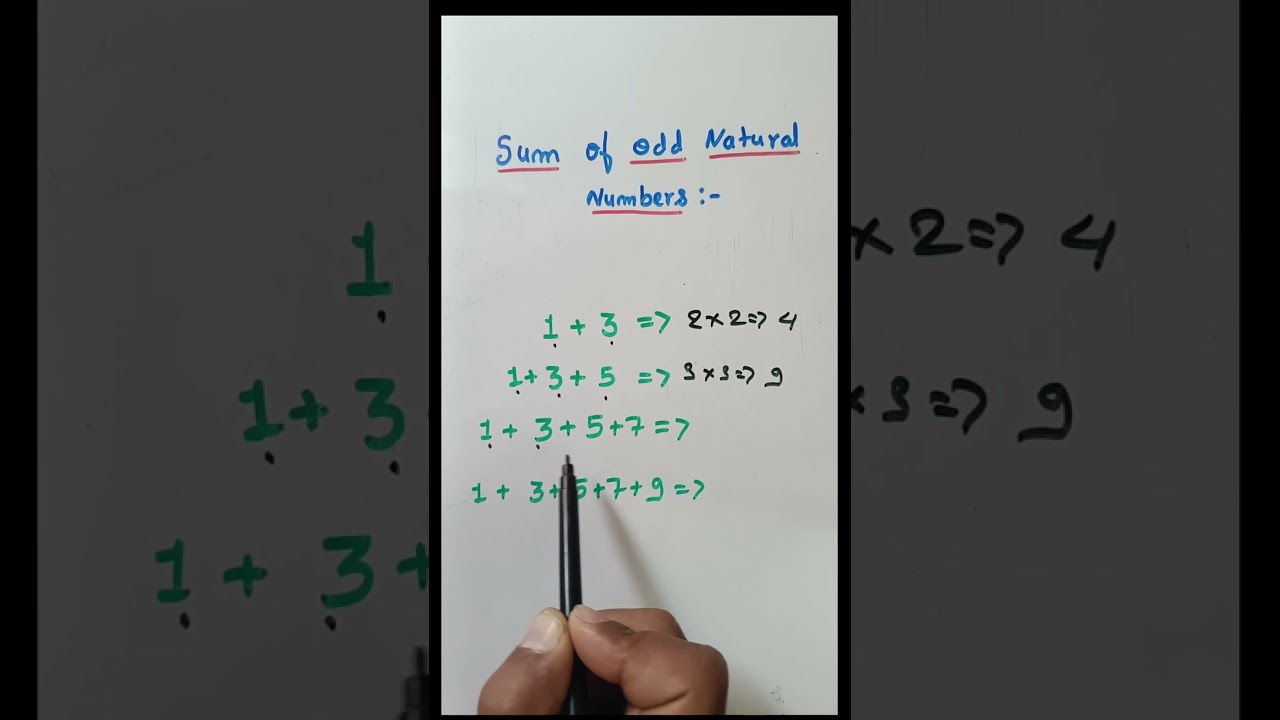 Sum of odd Natural
Numbers :-
1 + 3 => 2×2=> 4
1+ 3+ 5 => 3×3=> 9
1 + 3+ 5+7=>
1 + 3+5+7+9=>